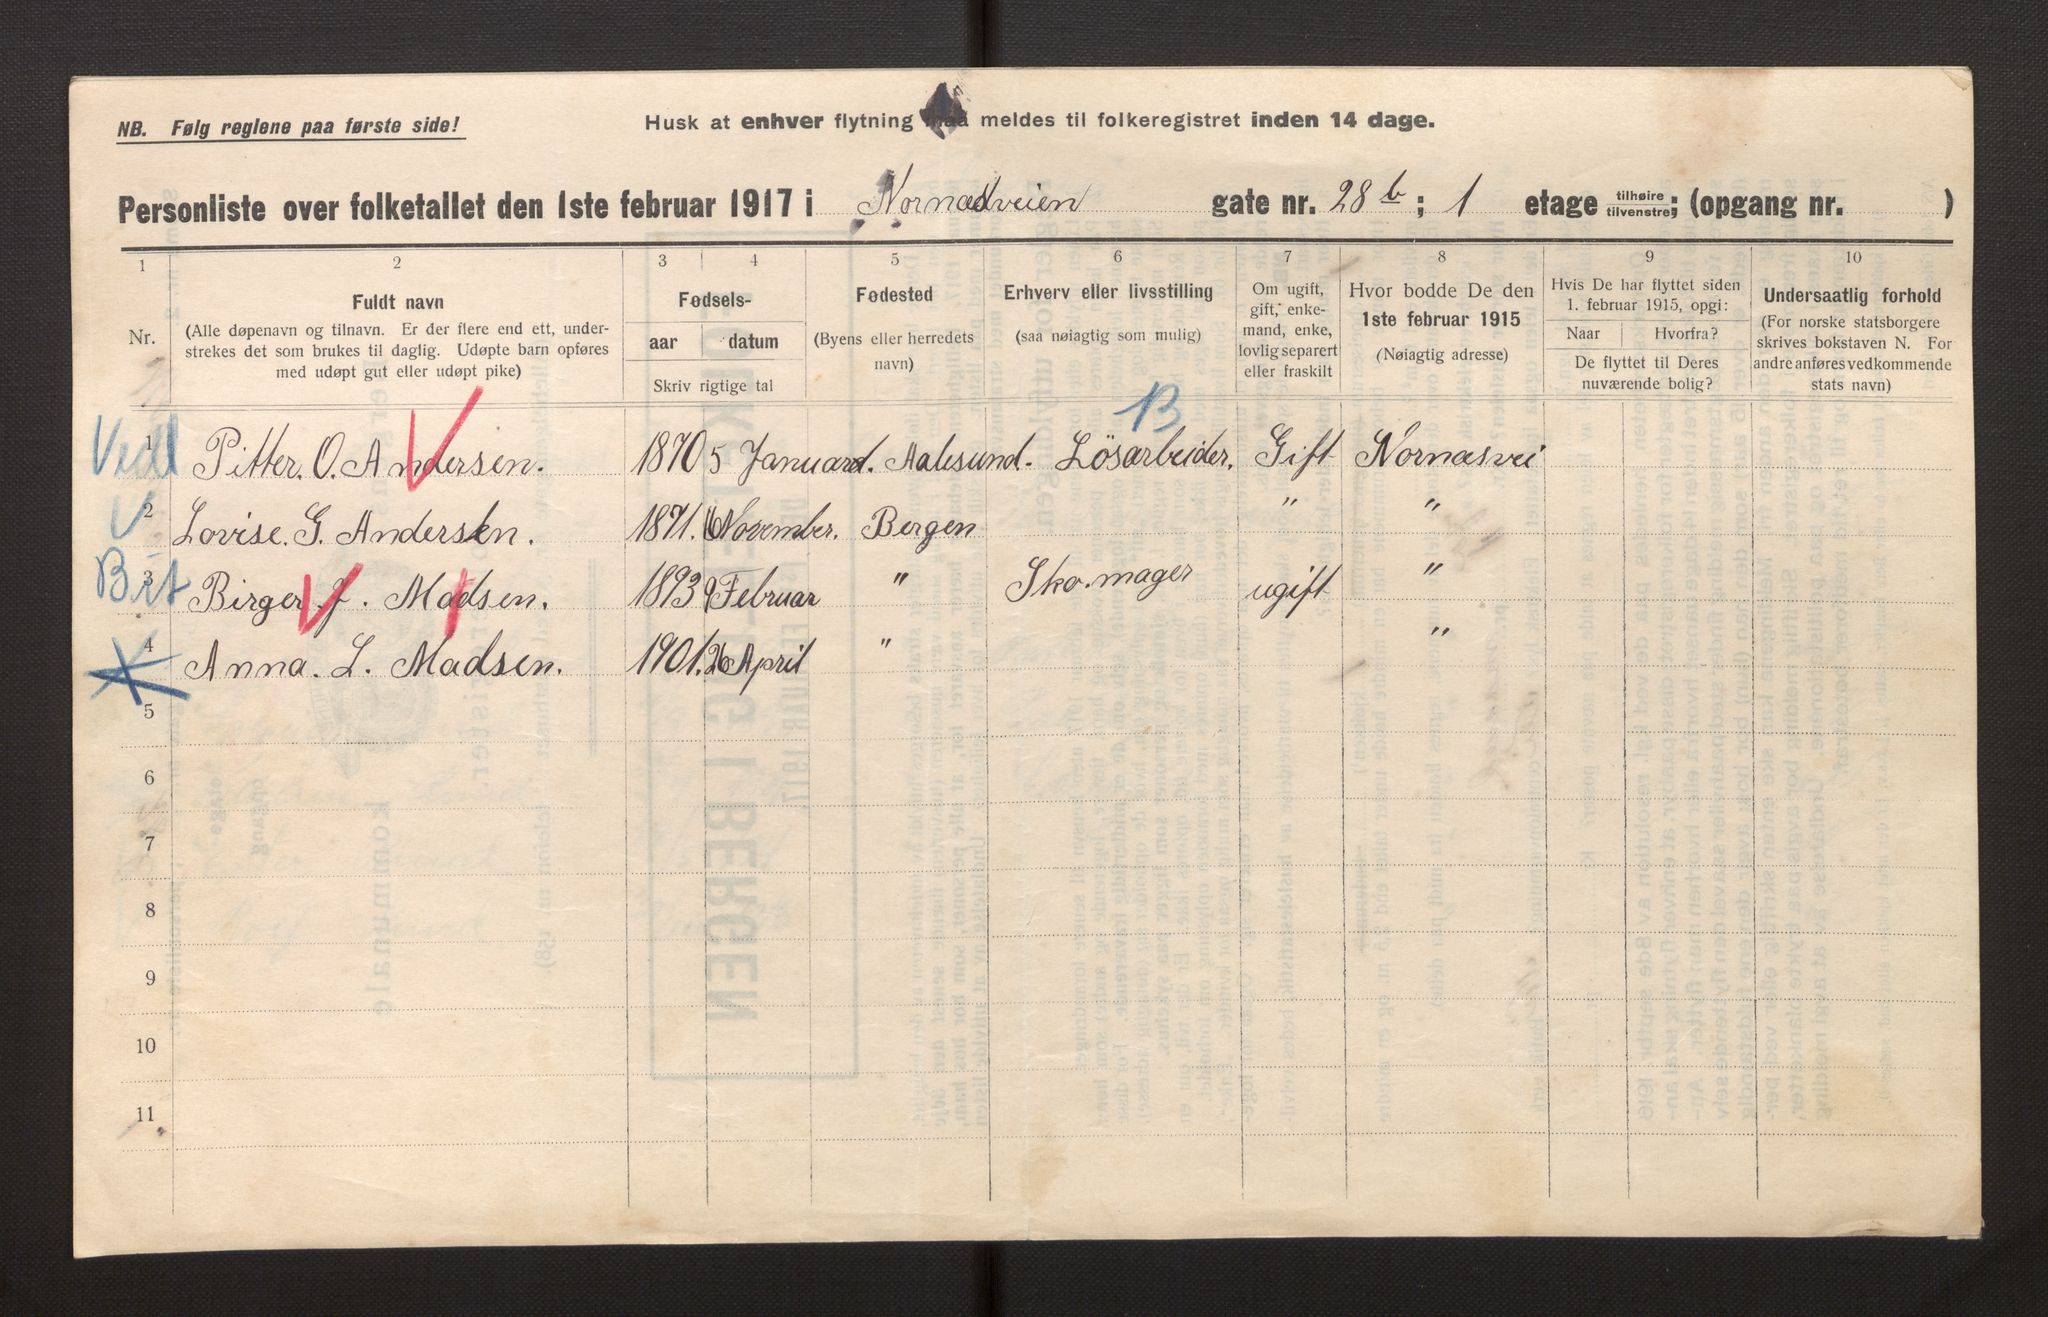 NB. Følg reglene paa første side!
Husk at enhver flytning maa meldes til folkeregistret inden 14 dage.
Personliste over folketallet den 1ste februar 1917 i Nornæsveien gate nr. 28 b ; 1 etage tilhøire tilvenstre ; (opgang nr. )
1 2 3 4 5 6 7 8 9 10
Nr.
Fuldt navn
(Alle døpenavn og tilnavn. Er der flere end ett, under-
strekes det som brukes til daglig. Udøpte barn opføres
med udøpt gut eller udøpt pike)
Fødsels-
aar datum
Skriv rigtige tal
Fødested
(Byens eller herredets
navn)
Erhverv eller livsstilling
(saa nøiagtig som mulig)
Om ugift,
gift, enke-
mand, enke,
lovlig separert
eller fraskilt
Hvor bodde De den
1ste februar 1915
(Nøiagtig adresse)
Hvis De har flyttet siden
1. februar 1915, opgi:
Naar Hvorfra?
De flyttet til Deres
nuværende bolig?
Undersaatlig forhold
(For norske statsborgere
skrives bokstaven N. For
andre anføres vedkommende
stats navn)
B
1 Pitter. O. Andersen. 1870 5 Januar. Aalesund. Lösarbeider. Gift Nornæsvei
2 Lovise. G. Andersen. 1871. 16 November. Bergen " "
3 Birger. J. Madsen. 1893 9 Februar " Sko.mager ugift "
4 Anna. L. Madsen. 1901. 26 April " "
5
6
7
8
9
10
11